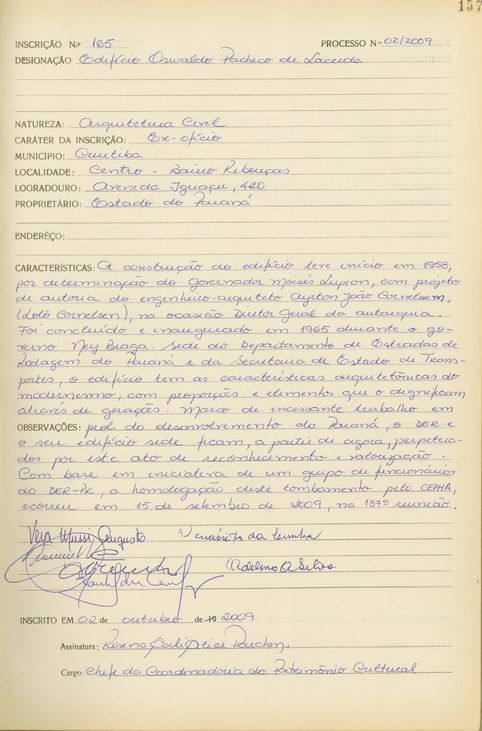 157
INSCRIÇÃO N.º 165 PROCESSO Nº 02/2009
DESIGNAÇÃO Edifício Oswaldo Pacheco de Lacerda
NATUREZA: Arquitetura Civil
CARÁTER DA INSCRIÇÃO: Ex-ofício
MUNICÍPIO: Curitiba
LOCALIDADE: Centro - Bairro Rebouças
LOGRADOURO: Avenida Iguaçu, 420
PROPRIETÁRIO: Estado do Paraná
ENDERÊÇO:
CARACTERÍSTICAS: A construção do edifício teve início em 1958,
por determinação do governador Moisés Lupion, com projeto
de autoria do engenheiro-arquiteto Ayrton João Cornelsen,
(Lolô Cornelsen), na ocasião Diretor Geral da autarquia.
Foi concluído e inaugurado em 1965 durante o go-
verno Ney Braga. Sede do Departamento de Estradas de
Rodagem do Paraná e da Secretaria de Estado de Trans-
portes, o edifício tem as características arquitetônicas do
modernismo, com proporções e elementos que o dignificam
através de gerações. Marco de incessante trabalho em
OBSERVAÇÕES: prol do desenvolvimento do Paraná, o DER e
o seu edifício sede ficam, a partir de agora, perpetua-
dos por este ato de reconhecimento e valorização.
Com base em iniciativa de um grupo de funcionários
do DER-Pr, a homologação deste tombamento pelo CEPHA,
ocorreu em 15 de setembro de 2009, na 137ª reunião.
Vera Mussi Augusto
da Cunha
Adelino A Silva
INSCRITO EM 02 de outubro de 19 2009
Assinatura: Rosina
Cargo: Chefe da Coordenadoria do Patrimônio Cultural